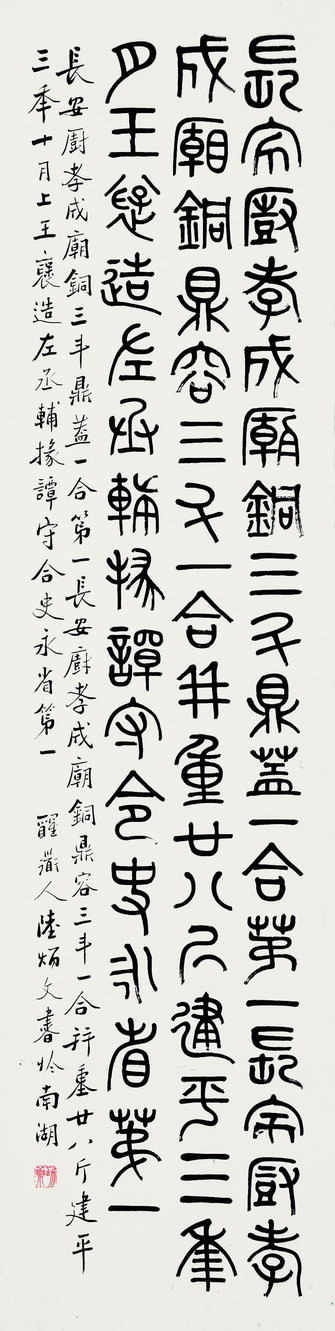 長安廚孝成廟銅三斗鼎蓋一合第一長安廚孝
成廟銅鼎容三斗一合并重廿八斤建平三年
月王襃造左丞輔掾譚守令史永省第一
長安廚孝成廟銅三斗鼎蓋一合第一長安廚孝成廟銅鼎容三斗一合并重廿八斤建平
三秊十月上王襄造左丞輔掾譚守合史永省第一 醒人陸炳文書於南湖